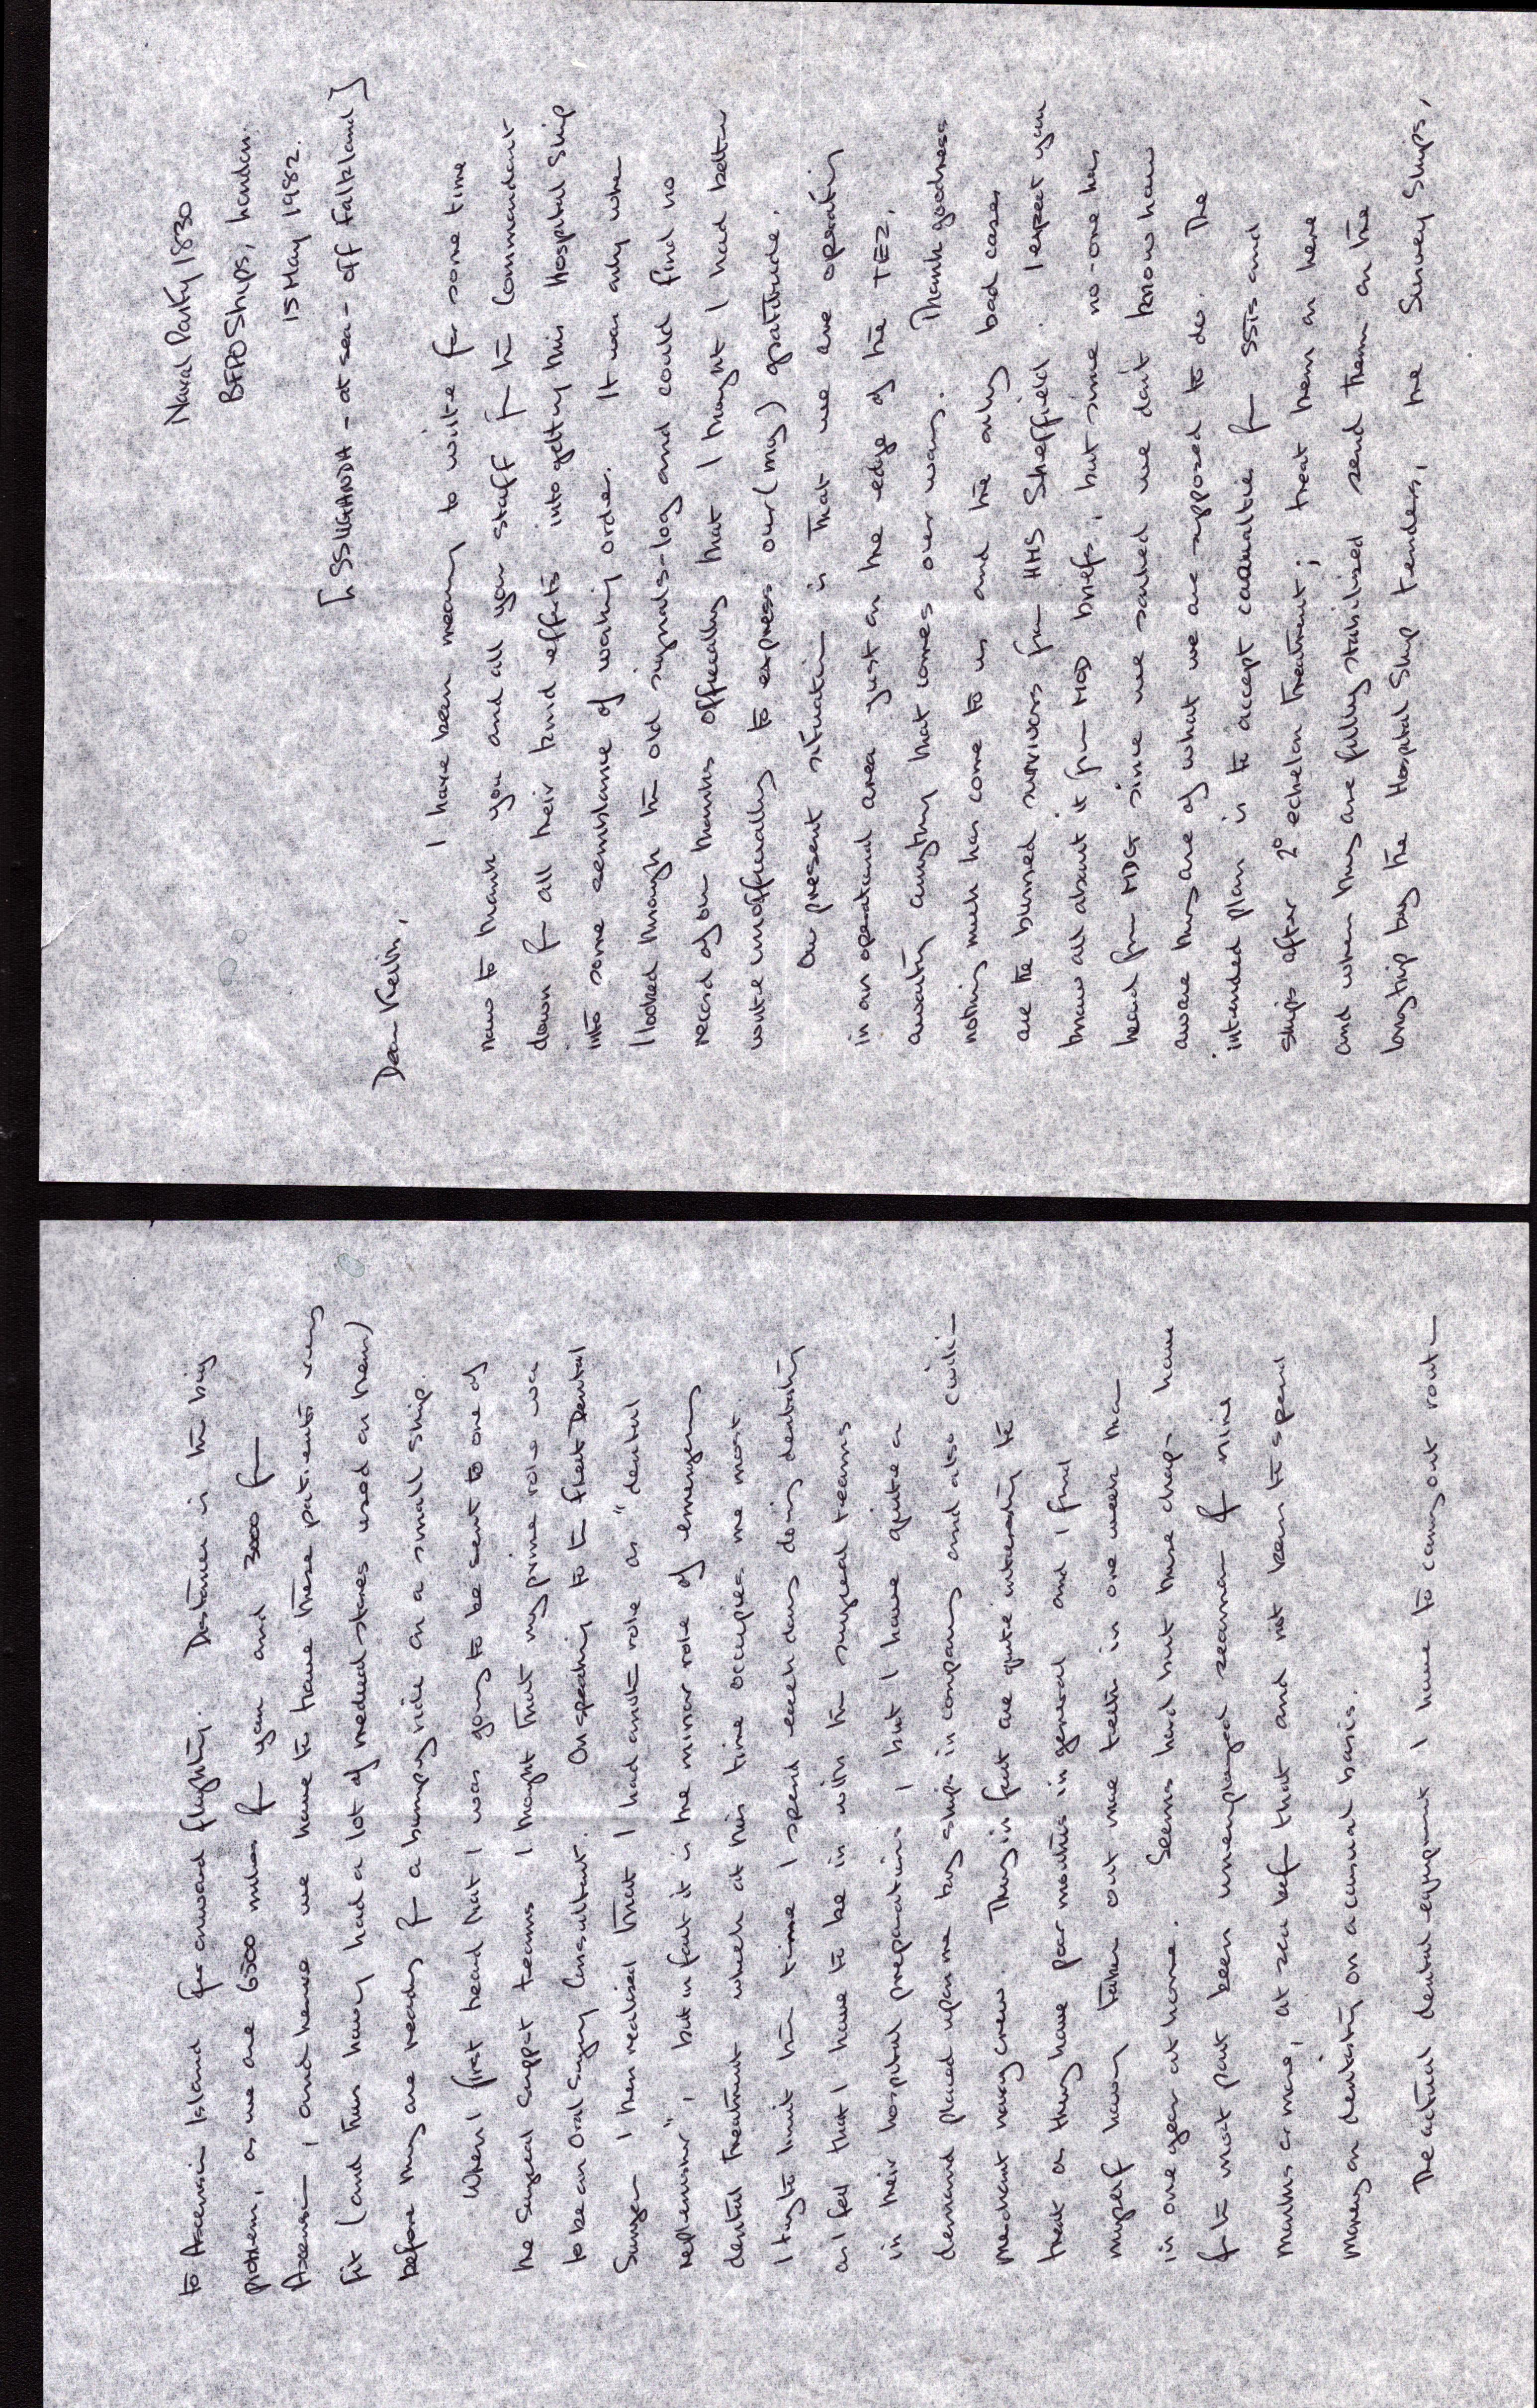 Naval Party 1830
BFPO Ships, London.
15 May 1982.
[SS UGANDA - at sea - off Falkland]
Dear Keith,
I have been meaning to write for some time
now to thank you and all your staff for the Commandant
down for all their kind efforts into getting this Hospital Ship
into some semblance of working order. It was only when
I looked through the old signals-log and could find no
record of our thanks officially that I thought I had better
write unofficially to express our (my) gratitude.
Our present situation is that we are operating
in an operational area just on the edge of the TEZ,
awaiting anything that comes over way. Thank goodness
nothing much has come to us and the only bad cases
are the burned survivors from HMS Sheffield. I expect you
know all about it from MOD briefs, but since no-one has
heard from MDG since we sailed we don't know how
aware they are of what we are supposed to do. The
intended plan is to accept casualties from SSTs and
ships after 2° echelon treatment; treat them on here
and when they are fully stabilised send them on the
long trip by the Hospital Ship tenders, the Survey Ships,
to Ascension Island for onward flighting. Distance is the big
problem, as we are 6500 miles from you and 3000 from
Ascension, and hence we have to have these patients very
fit (and thus having had a lot of medical stores used on them)
before they are ready for a bumpy ride on a small ship.
When I first heard that I was going to be sent to one of
the Surgical Support teams I thought that my prime role was
to be an Oral Surgery Consultant. On speaking to the Fleet Dental
Surgeon I then realised that I had another role as "dental
replenisher", but in fact it is the minor role of emergency
dental treatment which at this time occupies me most.
I try to limit the time I spend each day doing dentistry
as I feel that I have to be in with the surgical teams
in their hospital preparations, but I have quite a
demand placed upon me by ships in company and also civili-
merchant navy crew. They in fact are quite interesting to
treat as they have poor mouths in general and I find
myself having taken out more teeth in one week than
in one year at home. Seems hard but these chaps have
for the most part been unemployed seamen for nine
months or more, at sea before that and not keen to spend
money on dentistry on a casual basis.
The actual dental equipment I have to carry out rout-